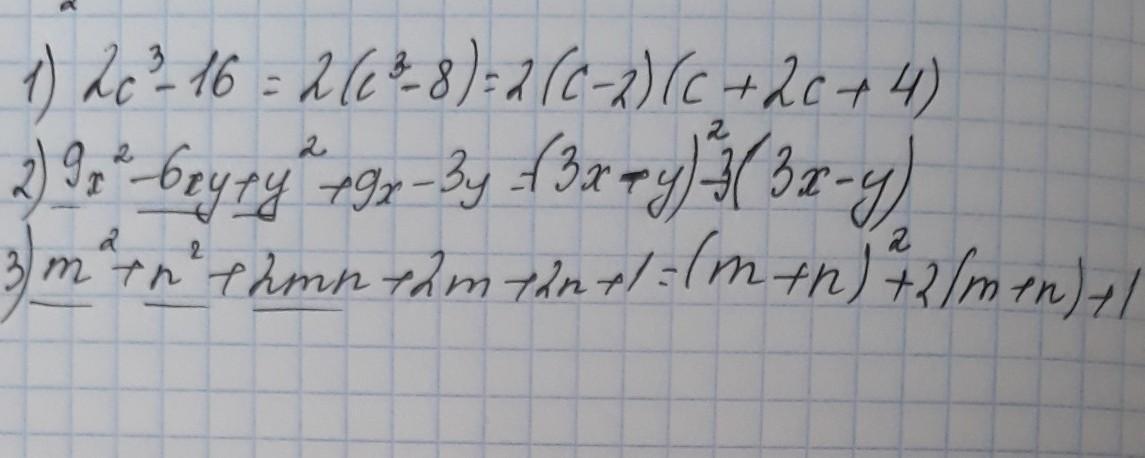 1) 2c³-16 = 2(c³-8)=2(c-2)(c+2c+4)
2) 9x²-6xy+y²+9x-3y=(3x-y)²-3(3x-y)
3) m²+n²+2mn+2m+2n+1=(m+n)²+2(m+n)+1